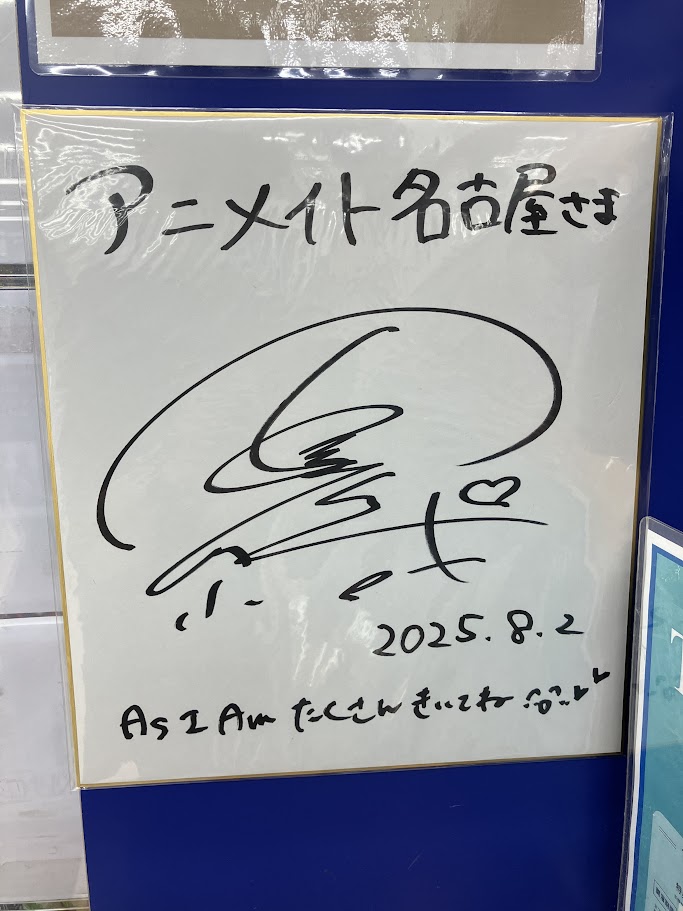 アニメイト名古屋さま
2025.8.2
As I Am たくさんきいてね